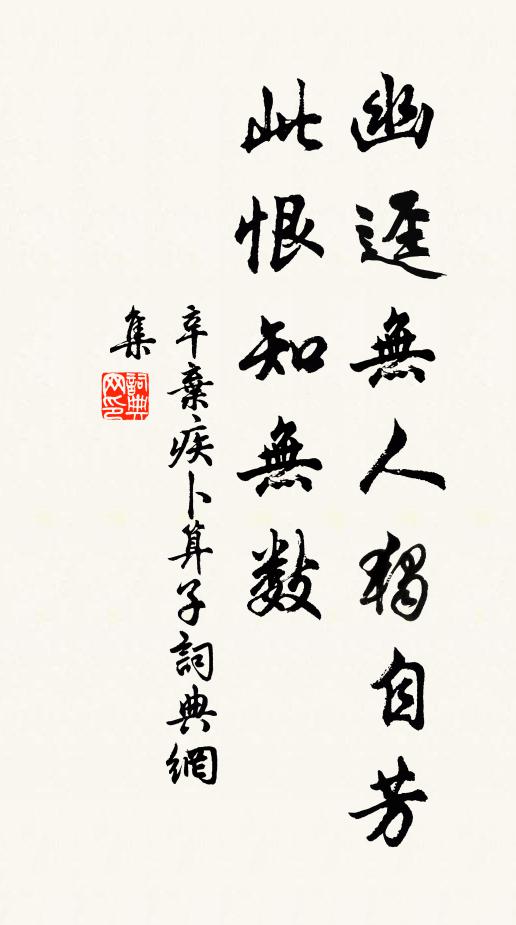 幽逕無人獨自芳
此恨知無數
辛棄疾卜算子詞典網
集
詞典
网印